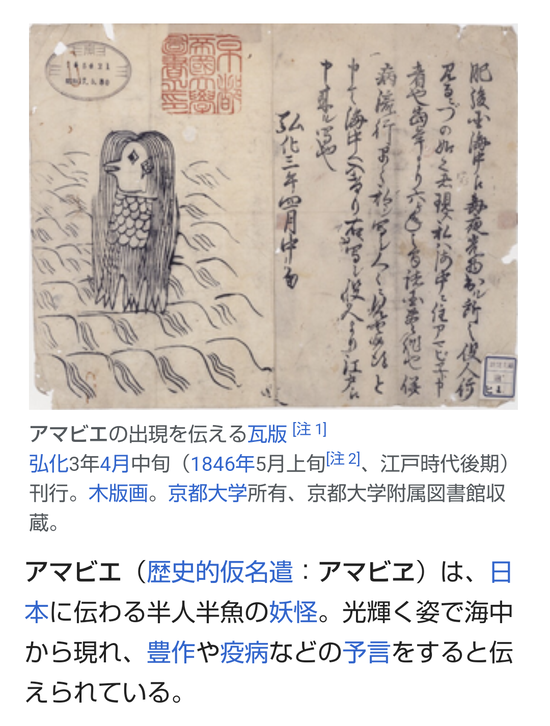 京都
帝國大學
圖書之印
肥後国海中え毎夜光物出ル所之役人行
見るニづの如く者現ス私ハ海中ニ住アマビヱト申
者也当年より六ヶ年之間諸国豊作也併
病流行早々私ヲ写シ人々ニ見セ候得と
申て海中へ入けり右写シ役人より江戸え
申来ル写也
弘化三年四月中旬
アマビエの出現を伝える瓦版[注 1]
弘化3年4月中旬（1846年5月上旬[注 2]、江戸時代後期）
刊行。木版画。京都大学所有、京都大学附属図書館収
蔵。
アマビエ（歴史的仮名遣：アマビヱ）は、日
本に伝わる半人半魚の妖怪。光輝く姿で海中
から現れ、豊作や疫病などの予言をすると伝
えられている。